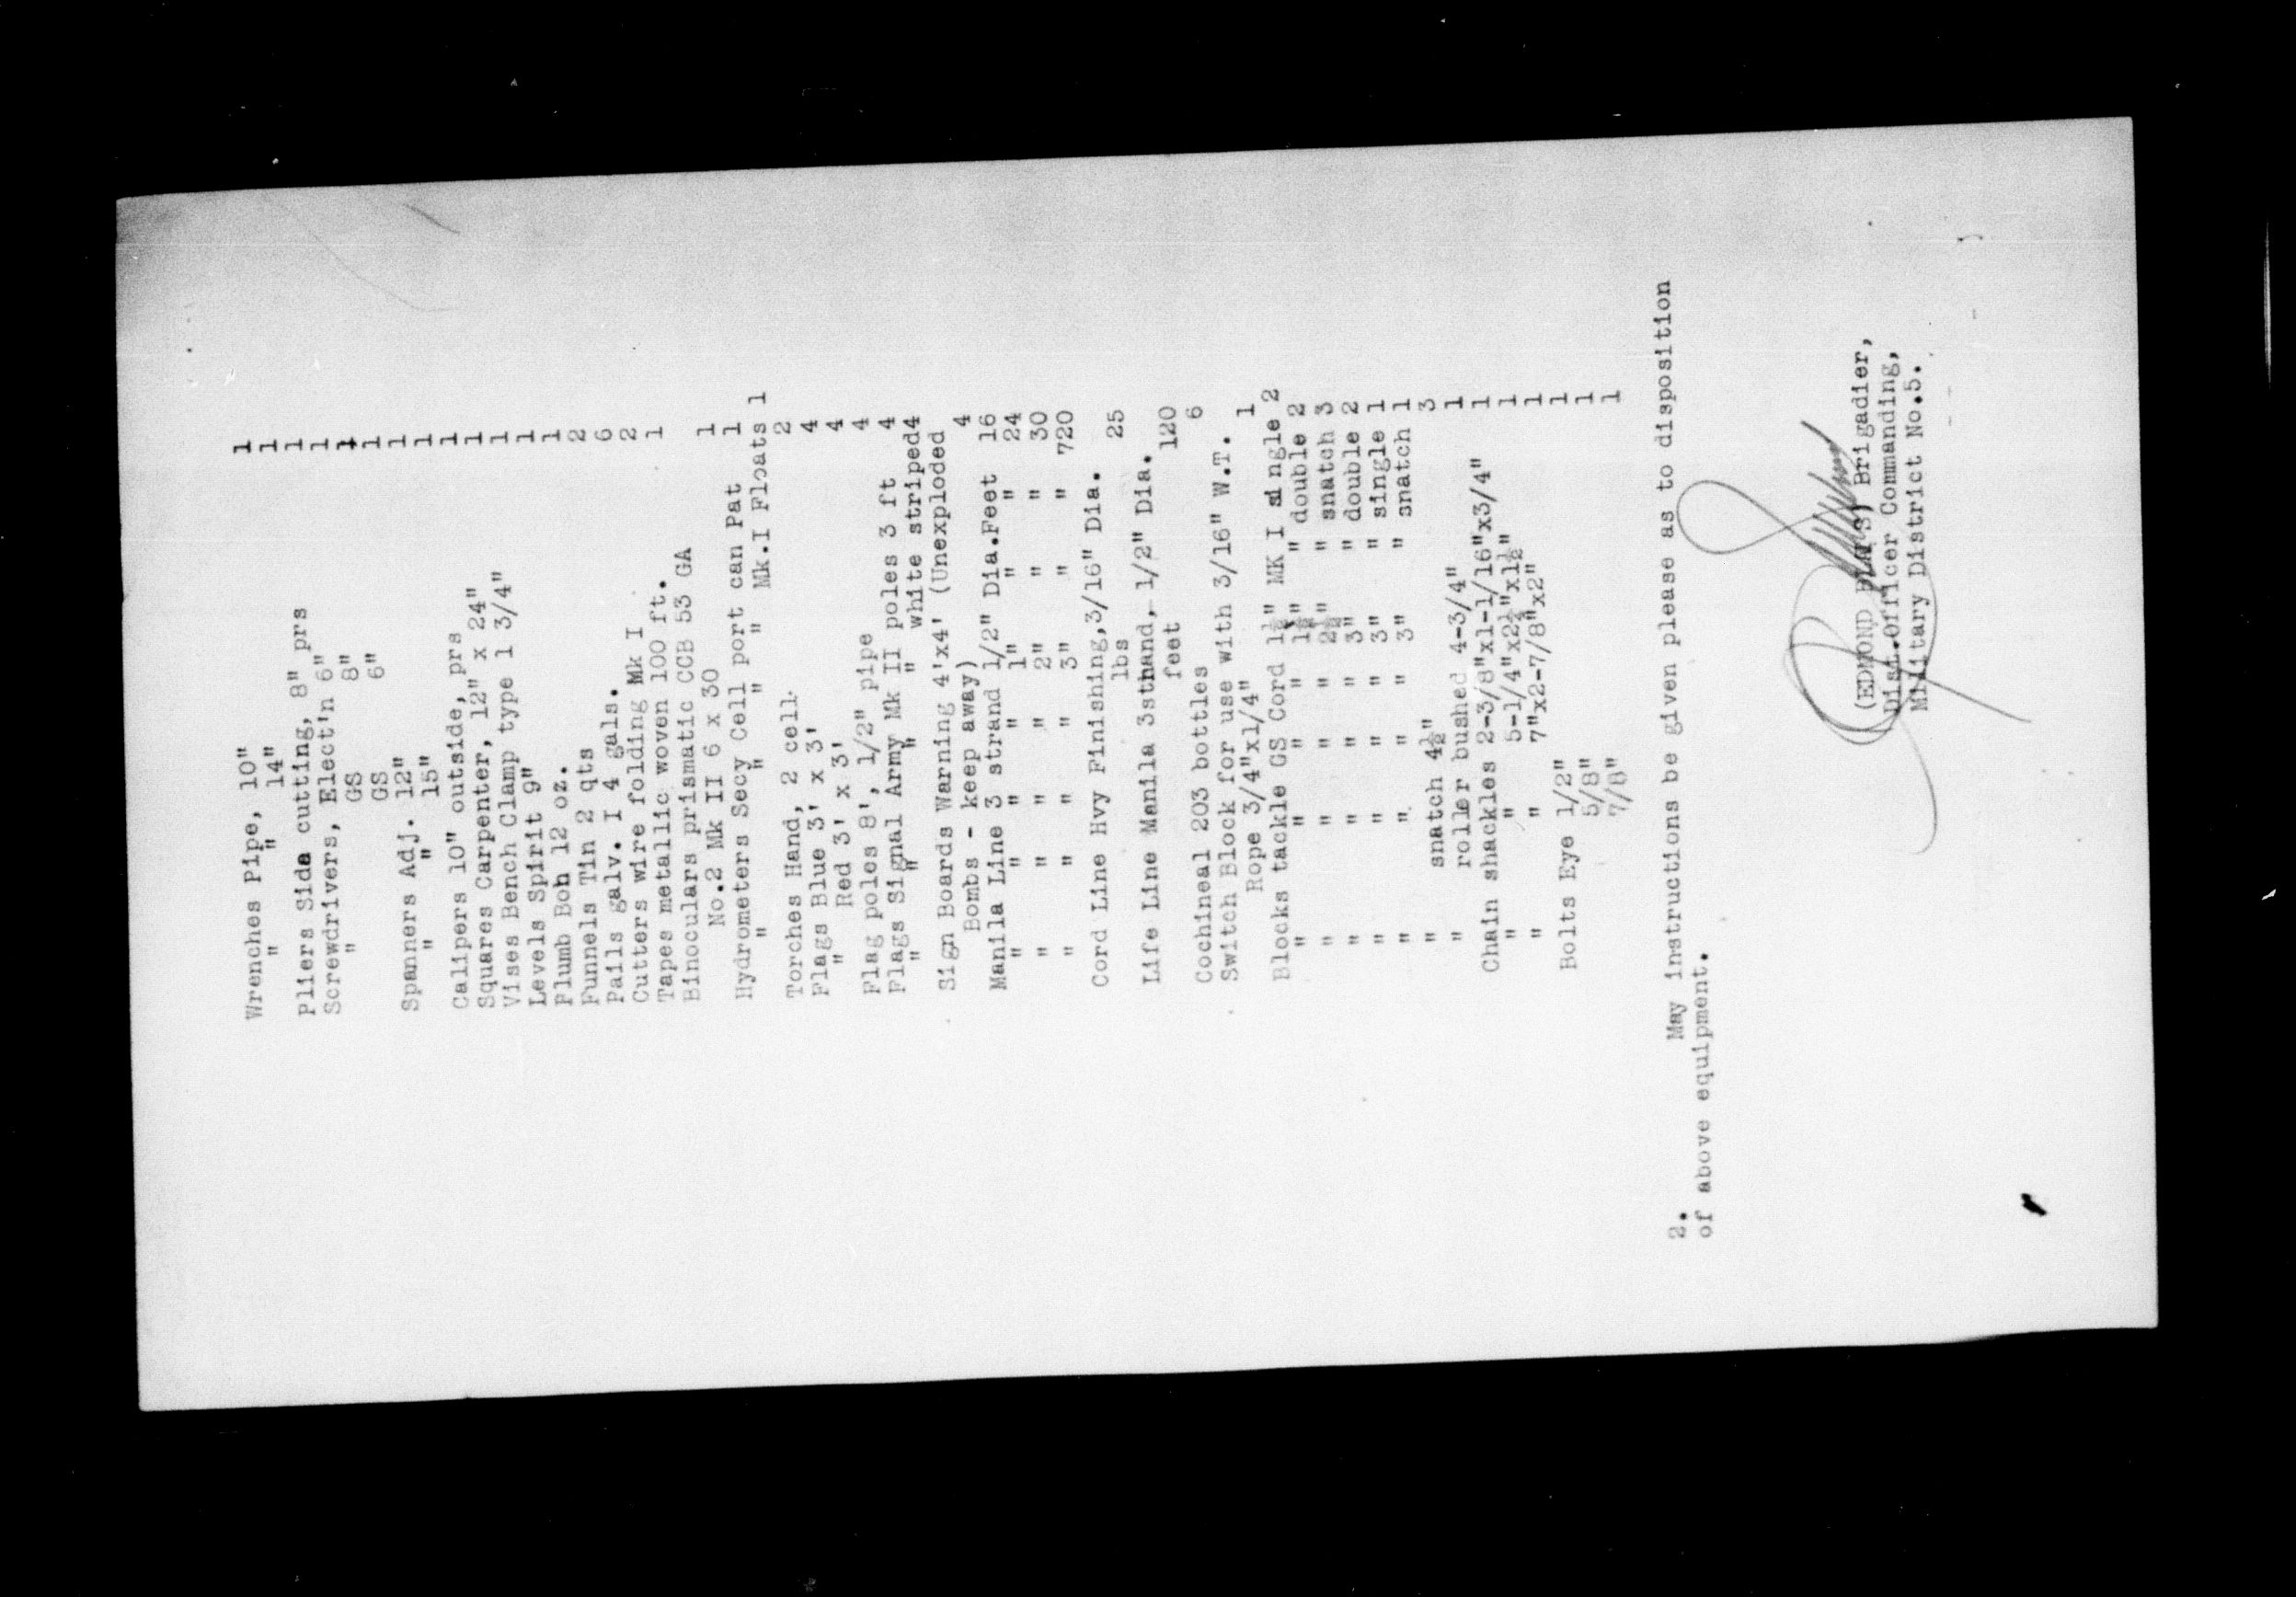 Wrenches Pipe, 10" 1
" " 14" 1
Pliers Side cutting, 8" prs 1
Screwdrivers, Elect'n 6" 1
" GS 8" 1
GS 6" 1
Spanners Adj. 12" 1
" " 15" 1
Calipers 10" outside, prs 1
Squares Carpenter, 12" x 24" 1
Vises Bench Clamp type 1 3/4" 1
Levels Spirit 9" 1
Plumb Boh 12 oz. 1
Funnels Tin 2 qts 2
Pails galv. I 4 gals. 6
Cutters wire folding Mk I 2
Tapes metallic woven 100 ft. 1
Binoculars prismatic CCB 53 GA
No.2 Mk II 6 x 30 1
Hydrometers Secy Cell port can Pat 1
" " " " Mk.I Floats 1
Torches Hand, 2 cell 2
Flags Blue 3' x 3' 4
" Red 3' x 3' 4
Flag poles 8', 1/2" pipe 4
Flags Signal Army Mk II poles 3 ft 4
" " " " white striped 4
Sign Boards Warning 4'x4' (Unexploded
Bombs - keep away) 4
Manila Line 3 strand 1/2" Dia.Feet 16
" " " " 1" " " 24
" " " " 2" " " 30
" " " " 3" " " 720
Cord Line Hvy Finishing,3/16" Dia.
lbs 25
Life Line Manila 3sthand, 1/2" Dia.
feet 120
Cochineal 203 bottles 6
Switch Block for use with 3/16" W.T.
Rope 3/4"x1/4" 1
Blocks tackle GS Cord 1½" MK I single 2
" " " " 1½" " double 2
" " " " 2½" " snatch 3
" " " " 3" " double 2
" " " " 3" " single 1
" " " " 3" " snatch 1
" snatch 4½" 3
" roller bushed 4-3/4" 1
Chain shackles 2-3/8"x1-1/16"x3/4" 1
" " 5-1/4"x2½"x1½" 1
" " 7"x2-7/8"x2" 1
Bolts Eye 1/2" 1
5/8" 1
7/8" 1
2. May instructions be given please as to disposition
of above equipment.
(EDMOND BLAIS) Brigadier,
Dist.Officer Commanding,
Military District No.5.